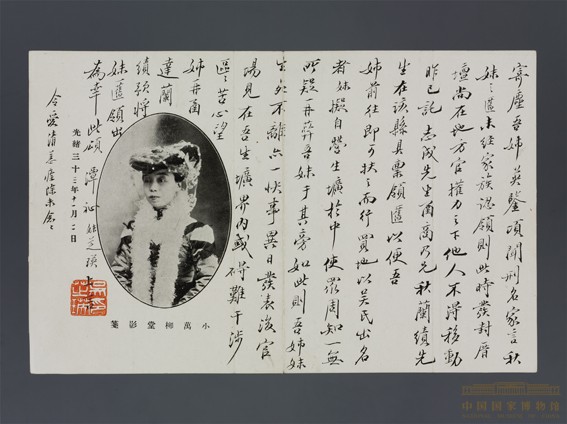 寄塵吾姊英鑒頃聞刑名家言秋
妹之匶未經家族認領則此時發封厝
壇尚在地方官權力之下他人不得移動
昨已託志成先生函商乃兄秋蘭績先
生在該縣具稟領匶以便吾
姊前往即可扶之而行買地以吳氏出名
者妹擬自營生壙於中使眾周知一無
所疑再葬吾妹于其旁如此則吾姊妹
生死不離亦一快事異日發表後官
場見在吾生壙界內或得難干涉
區區苦心望
姊再函
達蘭
績 將
妹匶領出
為幸此頌 潭祉 妹芝瑛
光緒三十三年十二月二日
令愛清恙 念念
小萬柳堂影箋
中国国家博物馆